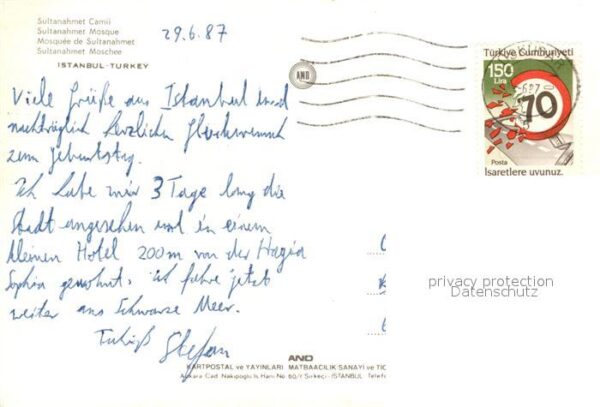 Sultanahmet Camii
Sultanahmet Mosque
Mosquée de Sultanahmet
Sultanahmet Moschee
ISTANBUL-TURKEY
29.6.87
AND
Türkiye Cumhuriyeti
150
Lira
70
Posta
İşaretlere uyunuz.
Viele Grüße aus Istanbul und
nachträglich herzlichen Glückwunsch
zum Geburtstag.
Ich habe mir 3 Tage lang die
Stadt angesehen und in einem
kleinen Hotel 200m von der Hagia
Sophia gewohnt. ich fahre jetzt
weiter ans Schwarze Meer.
Stefan
privacy protection
Datenschutz
AND
KARTPOSTAL ve YAYINLARI MATBAACILIK SANAYİ ve TİC
Ankara Cad. Nakipoğlu İş Hanı No 80/Y Sirkeci - İSTANBUL - Telefo